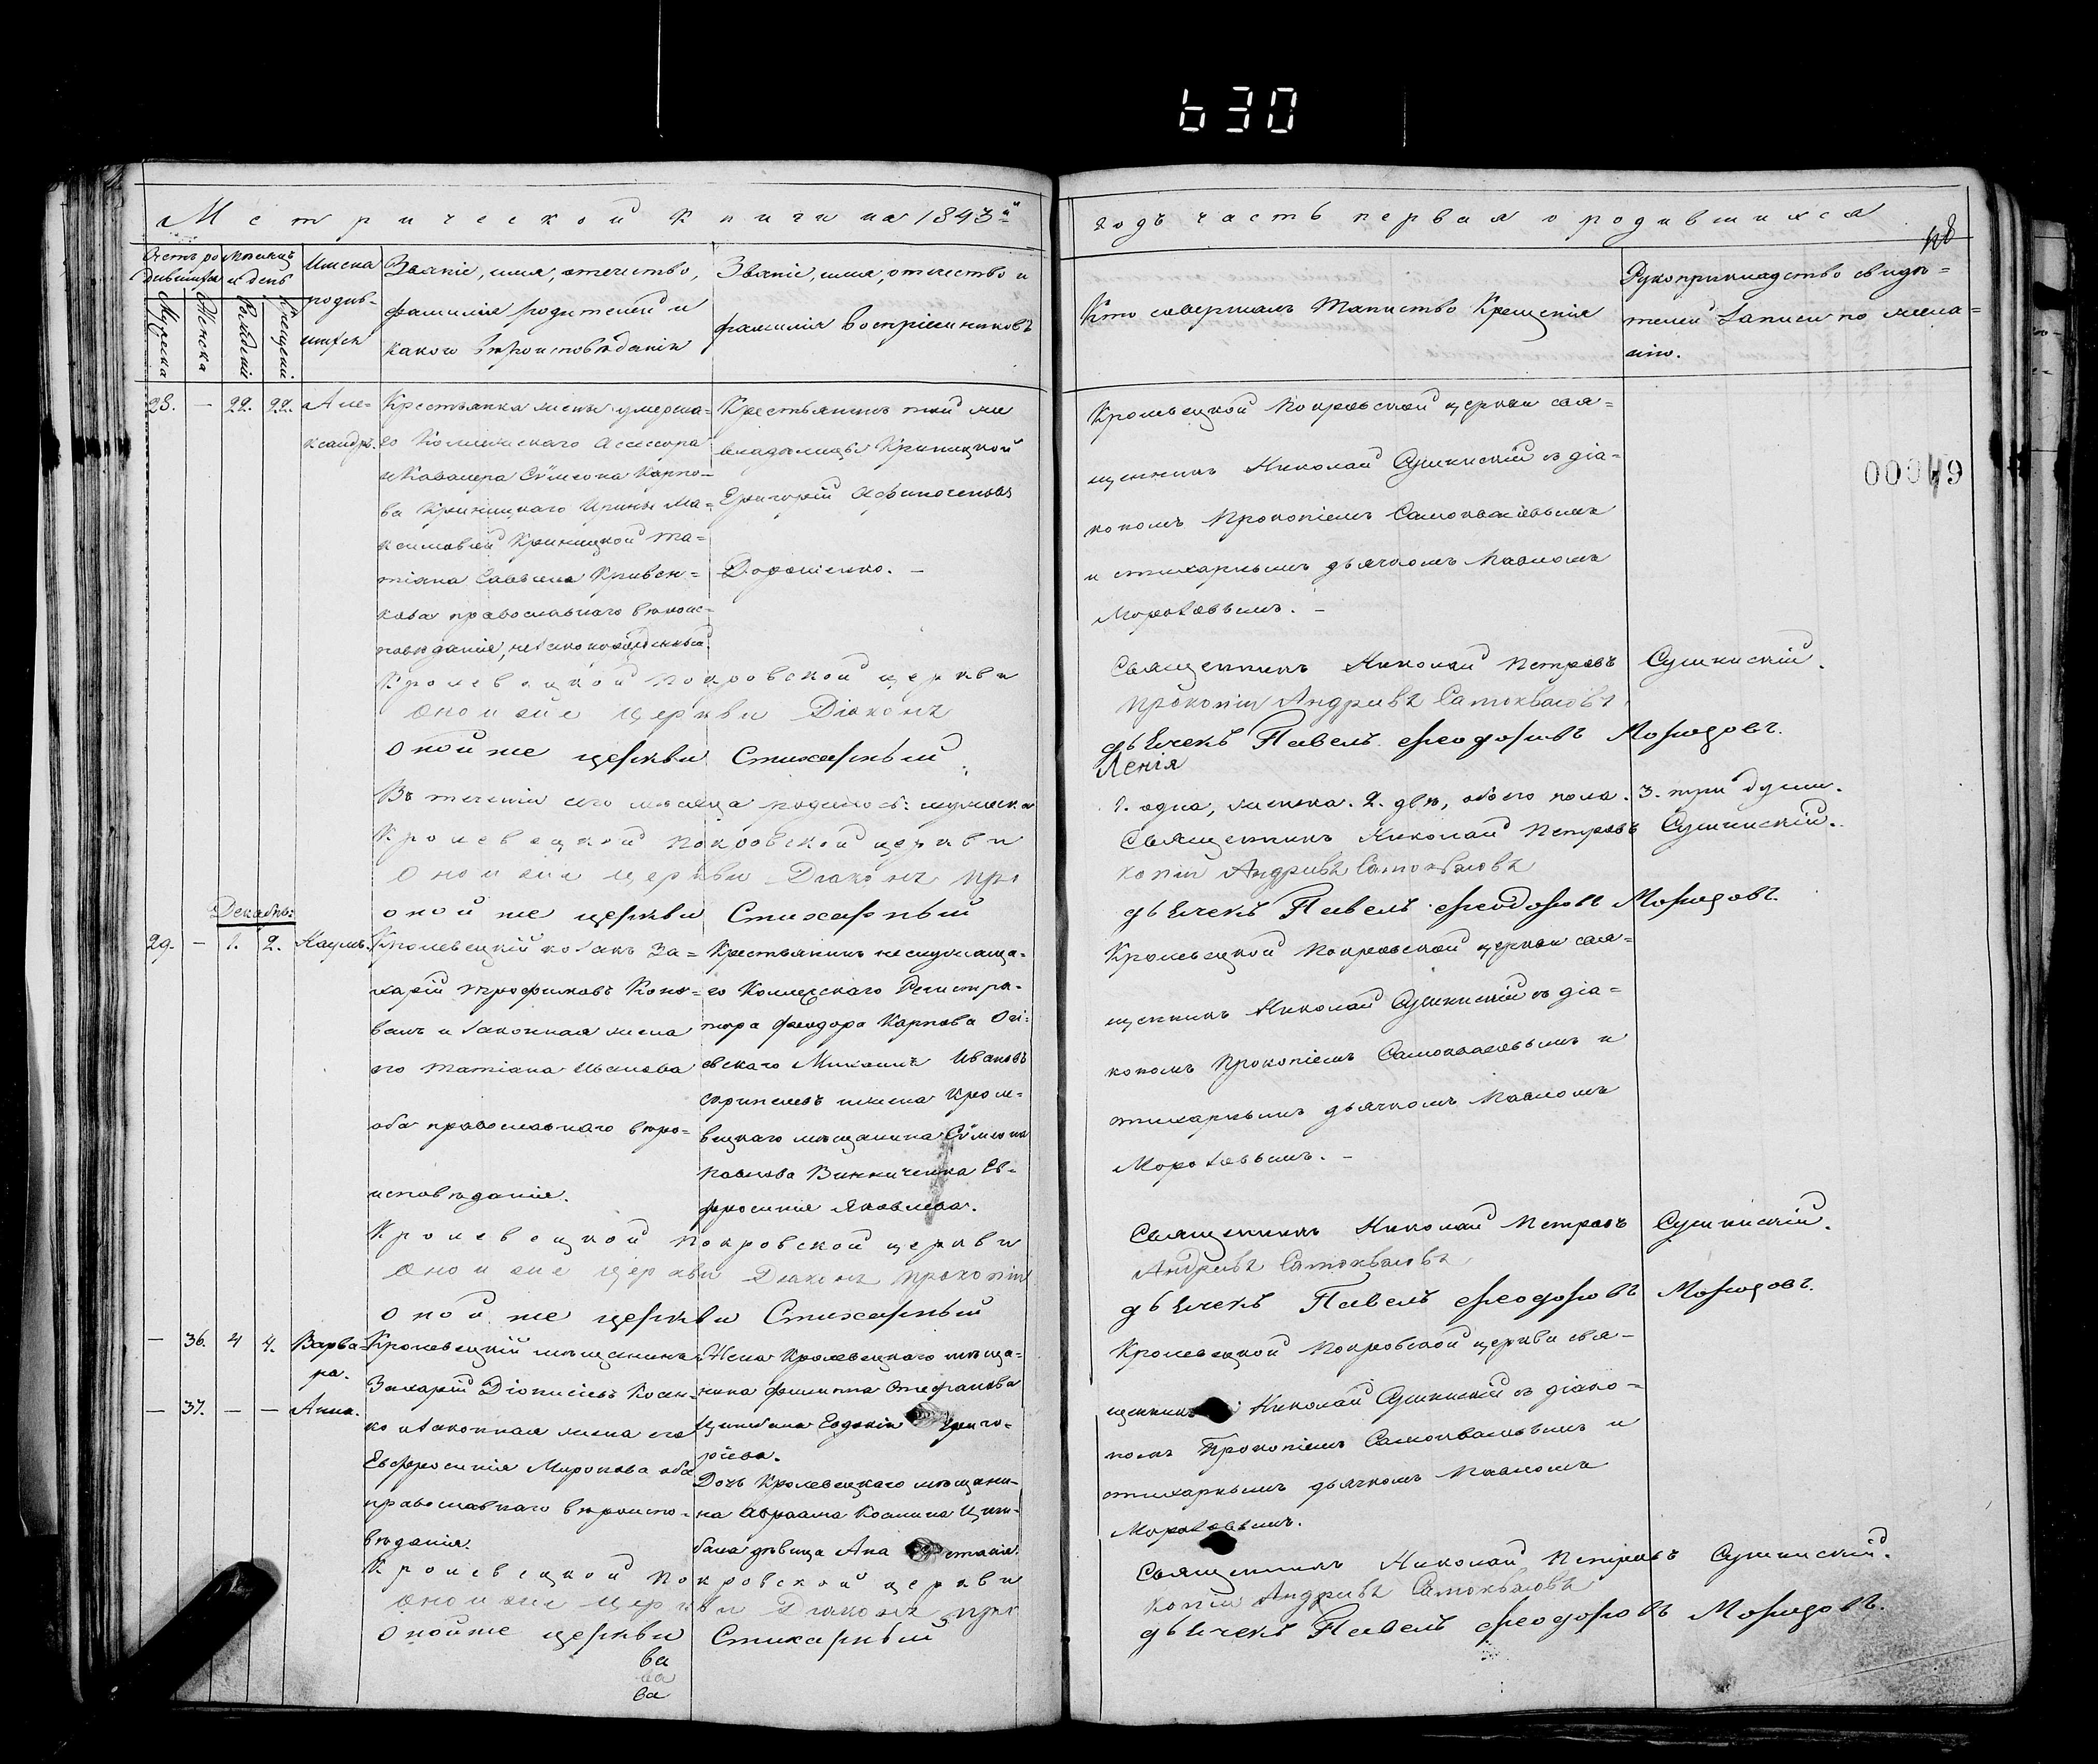 630
Метрической книги на 1843й
годъ часть первая о родившихся
Счетъ ро
дившихся
Мѣсяцъ
и день
Имена
родив-
шихся
Званіе, имя, отечество,
фамилія родителей и
какого вѣроисповѣданія
Званіе, имя, отечество и
фамилія воспріемниковъ
Мужеска
Женска
Рожденія
Крещенія
Кто совершалъ Таинство Крещенія
Рукоприкладство свидѣ=
телей записи по жела=
нію.
28. — 22. 22. Але=
ксандръ.
Крестьянка жены умерша=
го Коллежскаго Ассесора
и Кавалера Сѵмеона Карпо-
ва Криницкаго Ирины Ма=
ксимовой Криницкой Та=
тіяна Саввина Кривен=
кова православнаго вѣроис=
повѣданія, незаконнорожденный.
Крестьянинъ той же
владѣлицы Криницкой
Григорій
Дорошенко. —
Кролевецкой Покровской церкви свя=
щенникъ Николай Сушинскій съ діа=
кономъ Прокопіемъ Самоквасовымъ
и стихарнымъ дьячкомъ Павломъ
Морозовымъ. —
00049
Кролевецкой Покровской церкви
Священникъ Николай Петровъ Сушинскій.
Оной же церкви Діаконъ
Прокопій Андріевъ Самоквасовъ
Оной же церкви Стихарный
дьячекъ Павелъ Феодоровъ Морозовъ.
Въ теченіи сего мѣсяца родилось: мужеска
1. одна, женска. 2. двѣ, обоего пола. 3. три души.
Кролевецкой Покровской церкви
Священникъ Николай Петровъ Сушинскій.
Оной же церкви Діаконъ Про
копій Андріевъ Самоквасовъ
Оной же церкви Стихарный
дьячекъ Павелъ Феодоровъ Морозовъ.
Декабрь:
29. — 1. 2. Наумъ.
Кролевецкій козакъ За=
харій Трофимовъ Коно=
валъ и законная жена
его Татіана Иванова
оба православнаго вѣро=
исповѣданія.
Крестьянинъ неслужаща=
го Коллежскаго Регистра-
тора Феодора Карпова Огі=
евскаго Михаилъ Ивановъ
жена Кроле-
вецкаго мѣщанина Сѵмеона
Павлова Винниченка Ев-
фросинія Яковлева.
Кролевецкой Покровской церкви свя=
щенникъ Николай Сушинскій съ діа=
кономъ Прокопіемъ Самоквасовымъ и
стихарнымъ дьячкомъ Павломъ
Морозовымъ. —
Кролевецкой Покровской церкви
Священникъ Николай Петровъ Сушинскій.
Оной же церкви Діаконъ Прокопій
Андріевъ Самоквасовъ
Оной же церкви Стихарный
дьячекъ Павелъ Феодоровъ Морозовъ.
— 36. 4 4. Варва=
ра.
— 37. — — Анна.
Кролевецкій мѣщанинъ
Захарій Діонисіевъ Косен-
ко и законная жена его
Евфросинія Миронова оба
православнаго вѣроиспо-
вѣданія.
Жена Кролевецкаго мѣща=
нина Филиппа Стефанова
Цимбала Евдокія Григо-
ріева.
Дочь Кролевецкаго мѣщани-
на Авраама Космина Цим-
бала дѣвица Ана стасія.
Кролевецкой Покровской церкви свя-
щенникъ Николай Сушинскій съ діако=
номъ Прокопіемъ Самоквасовымъ и
стихарнымъ дьячкомъ Павломъ
Морозовымъ.
Кролевецкой Покровской церкви
Священникъ Николай Петровъ Сушинскій.
Оной же церкви Діаконъ Про
копій Андріевъ Самоквасовъ
Оной же церкви Стихарный
дьячекъ Павелъ Феодоровъ Морозовъ.
ва
ва
ва